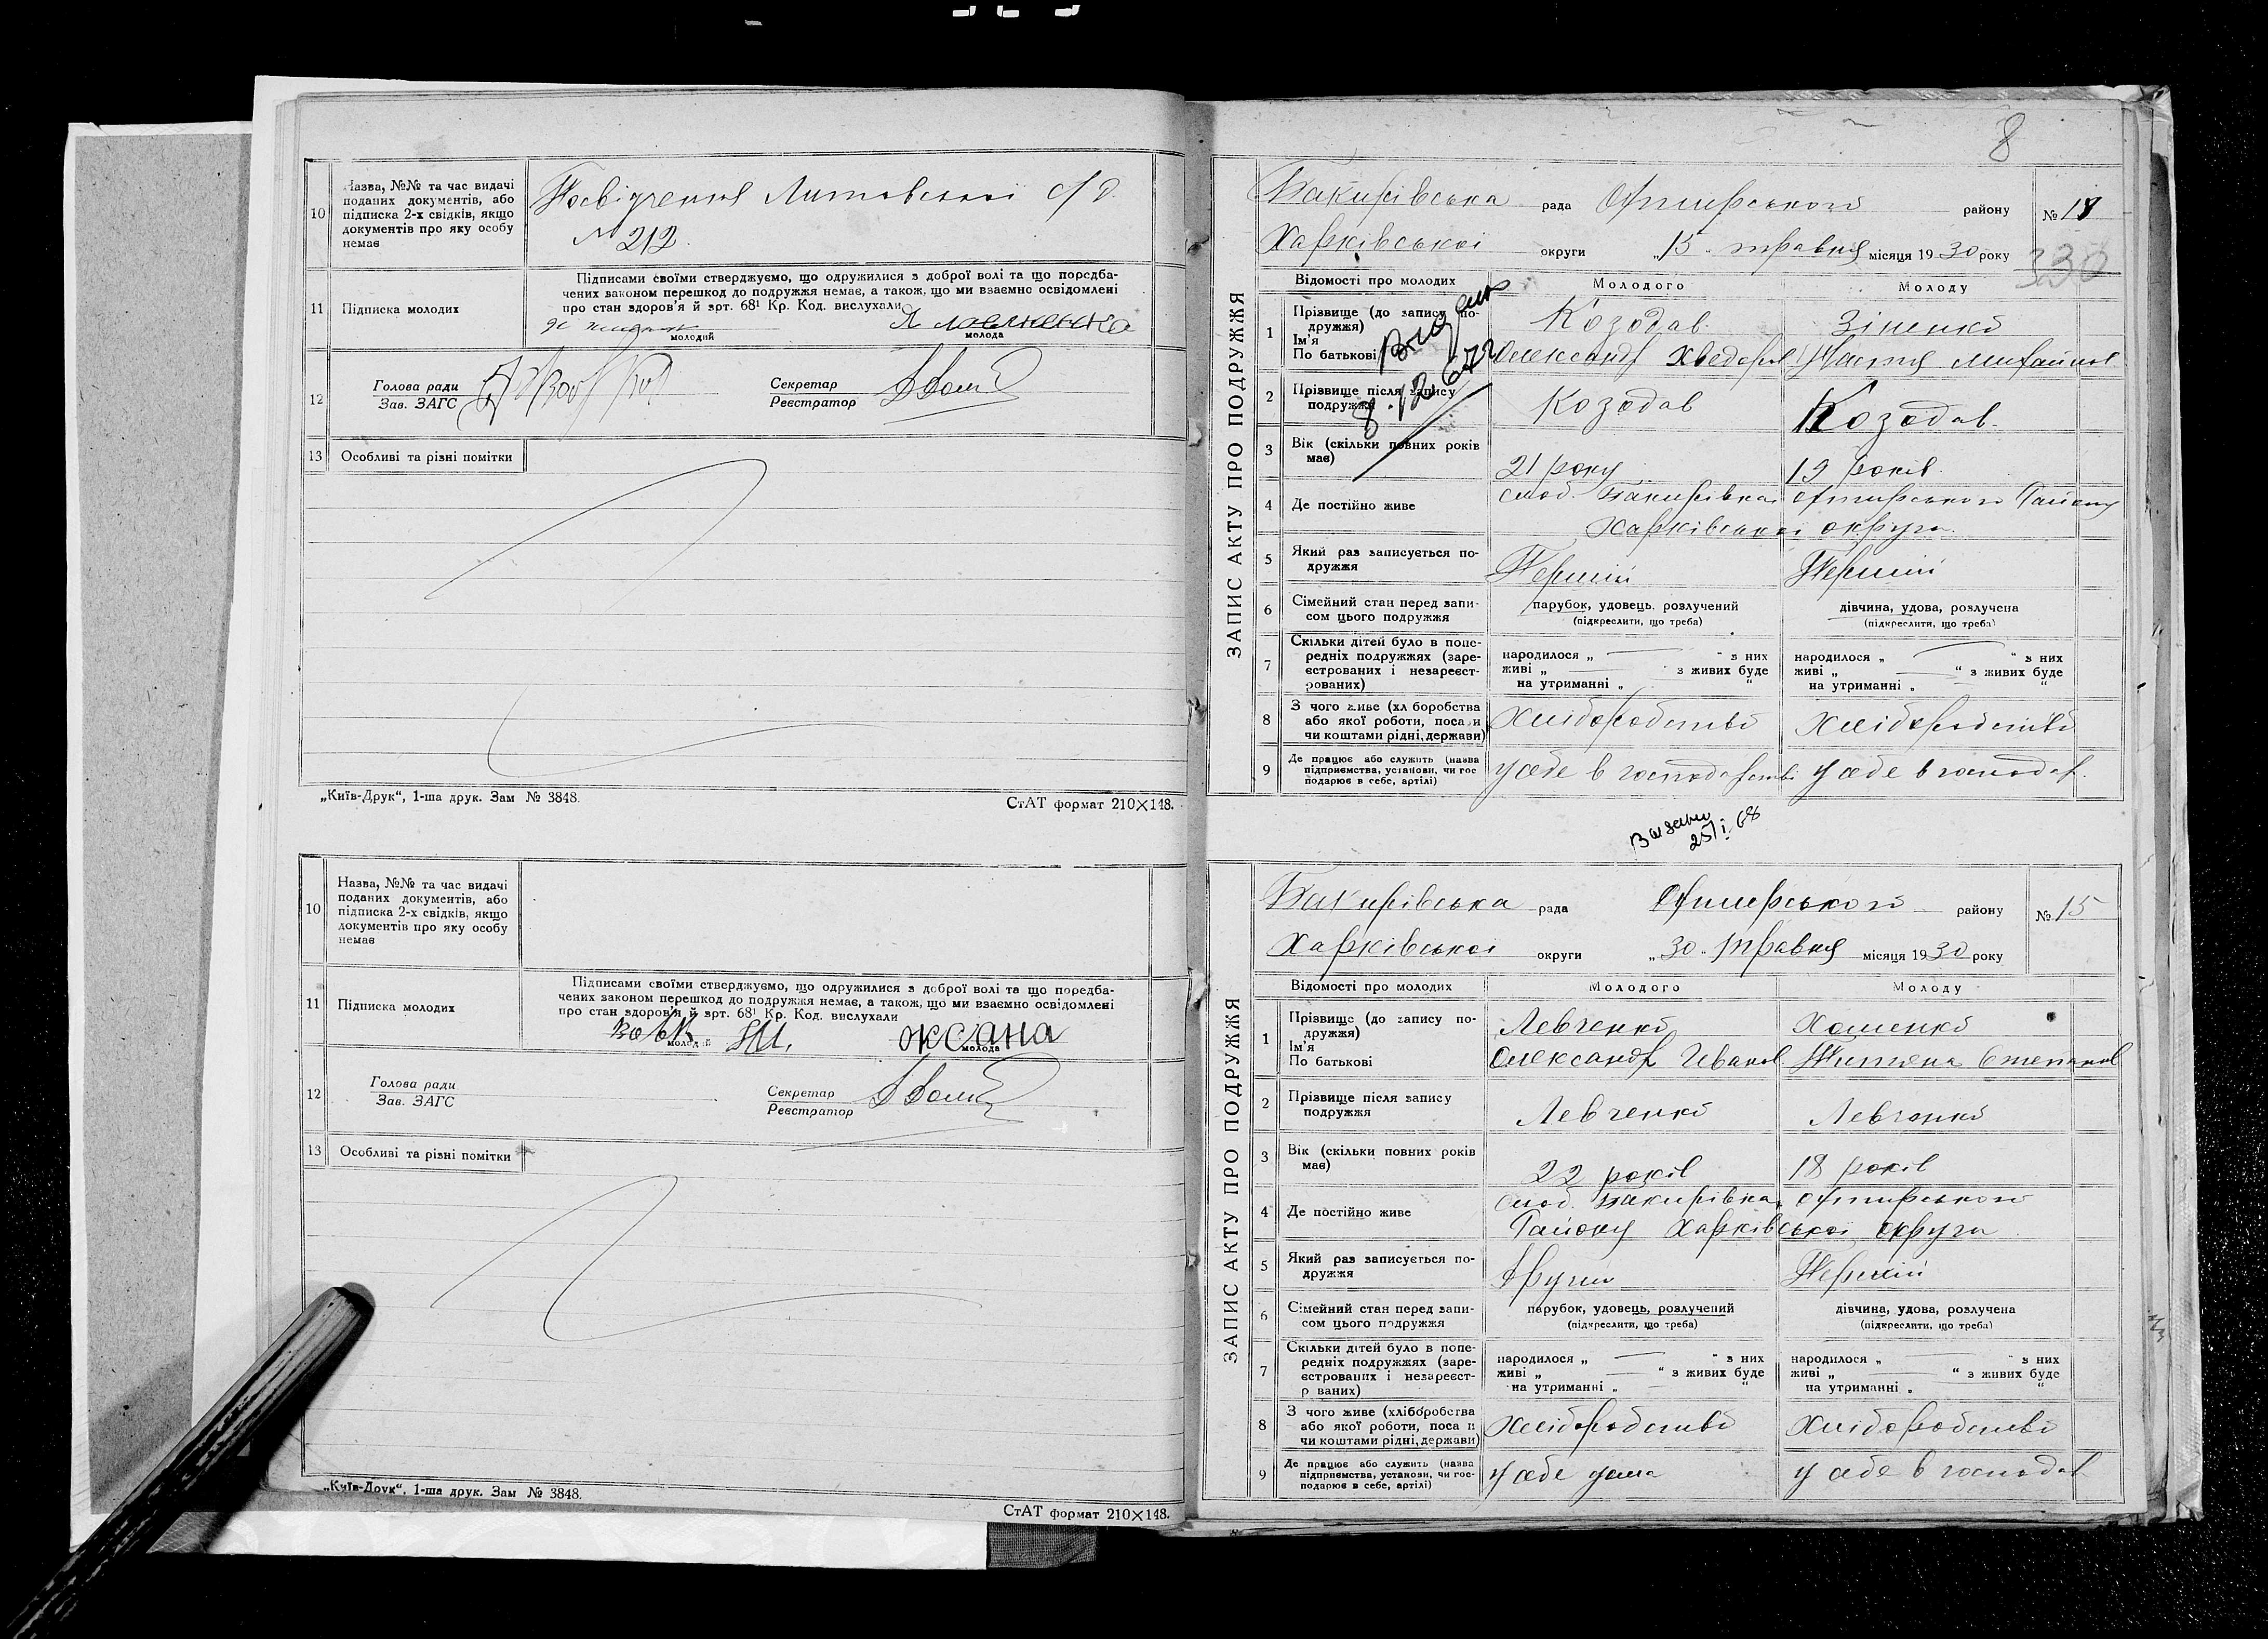 10
Назва, №№ та час видачі
поданих документів, або
підписка 2-х свідків, якщо
документів про яку особу
немає
Посвідчення Литовської с/р
№ 212.
11
Підписка молодих
Підписами своїми стверджуємо, що одружилися з доброї волі та що передба-
чених законом перешкод до подружжя немає, а також, що ми взаємно освідомлені
про стан здоров'я й арт. 68¹ Кр. Код. вислухали
молодий
молода
12
Голова ради
Зав. ЗАГС
Секретар
Реєстратор
13
Особливі та різні помітки
„Київ-Друк“, 1-ша друк. Зам № 3848.
СтАТ формат 210×148.
10
Назва, №№ та час видачі
поданих документів, або
підписка 2-х свідків, якщо
документів про яку особу
немає
11
Підписка молодих
Підписами своїми стверджуємо, що одружилися з доброї волі та що передба-
чених законом перешкод до подружжя немає, а також, що ми взаємно освідомлені
про стан здоров'я й арт. 68¹ Кр. Код. вислухали
Вовк оксана
молодий
молода
12
Голова ради
Зав. ЗАГС
Секретар
Реєстратор
13
Особливі та різні помітки
„Київ-Друк“, 1-ша друк. Зам № 3848.
СтАТ формат 210×148.
8
ЗАПИС АКТУ ПРО ПОДРУЖЖЯ
Бакирівська рада Охтирського району № 18
Харківської округи „15„ травня місяця 1930 року
330
Відомості про молодих
Молодого
Молоду
1
Прізвище (до запису по-
дружжя)
Ім'я
По батькові
Козодав
Олександр Хведоров
Зіненко
Настя Михайлов
2
Прізвище після запису
подружжя
Козодав
Козодав
3
Вік (скільки повних років
має)
21 року
19 років
4
Де постійно живе
слоб. Бакирівка, Охтирського Району
Харківської округи
5
Який раз записується по-
дружжя
Перший
Перший
6
Сімейний стан перед запи-
сом цього подружжя
парубок, удовець, розлучений
(підкреслити, що треба)
дівчина, удова, розлучена
(підкреслити, що треба)
7
Скільки дітей було в попе-
редніх подружжях (заре-
єстрованих і незареєст-
рованих)
народилося „ — “ з них
живі „ — “ з живих буде
на утриманні „ “
народилося „ — “ з них
живі „ — “ з живих буде
на утриманні „ “
8
З чого живе (хліборобства
або якої роботи, посади
чи коштами рідні, держави)
Хліборобство
Хліборобство
9
Де працює або служить (назва
підприємства, установи, чи гос
подарює в себе, артілі)
у себе в господарстві
у себе в господар.
Видано
25/I 68
ЗАПИС АКТУ ПРО ПОДРУЖЖЯ
Бакирівська рада Охтирського району № 15
Харківської округи „30„ Травня місяця 1930 року
Відомості про молодих
Молодого
Молоду
1
Прізвище (до запису по-
дружжя)
Ім'я
По батькові
Левченко
Олександр Іванов
Хоменко
Титяна Степанов
2
Прізвище після запису
подружжя
Левченко
Левченко
3
Вік (скільки повних років
має)
22 років
18 років
4
Де постійно живе
слоб. Бакирівка, Охтирського
Району Харківської округи
5
Який раз записується по-
дружжя
Другий
Перший
6
Сімейний стан перед запи-
сом цього подружжя
парубок, удовець, розлучений
(підкреслити, що треба)
дівчина, удова, розлучена
(підкреслити, що треба)
7
Скільки дітей було в попе-
редніх подружжях (заре-
єстрованих і незареєст-
р ваних)
народилося „ — “ з них
живі „ — “ з живих буде
на утриманні „ “
народилося „ — “ з них
живі „ — “ з живих буде
на утриманні „ “
8
З чого живе (хліборобства
або якої роботи, поса и
чи коштами рідні, держави)
Хліборобство
Хліборобство
9
Де працює або служить (назва
підприємства, установи, чи гос-
подарює в себе, артілі)
у себе дома
у себе в господар